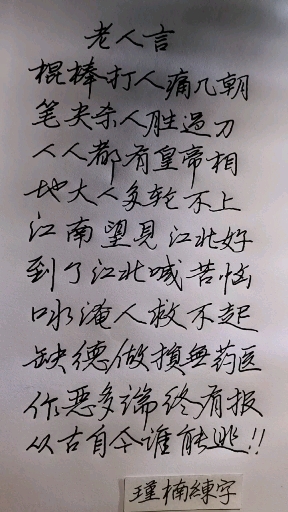 老人言
棍棒打人痛几朝
笔尖杀人胜过刀
人人都有皇帝相
地大人多轮不上
江南望见江北好
到了江北喊苦恼
口水淹人救不起
缺德做损無药医
作恶多端终有报
从古自今谁能逃!!
瑾楠練字